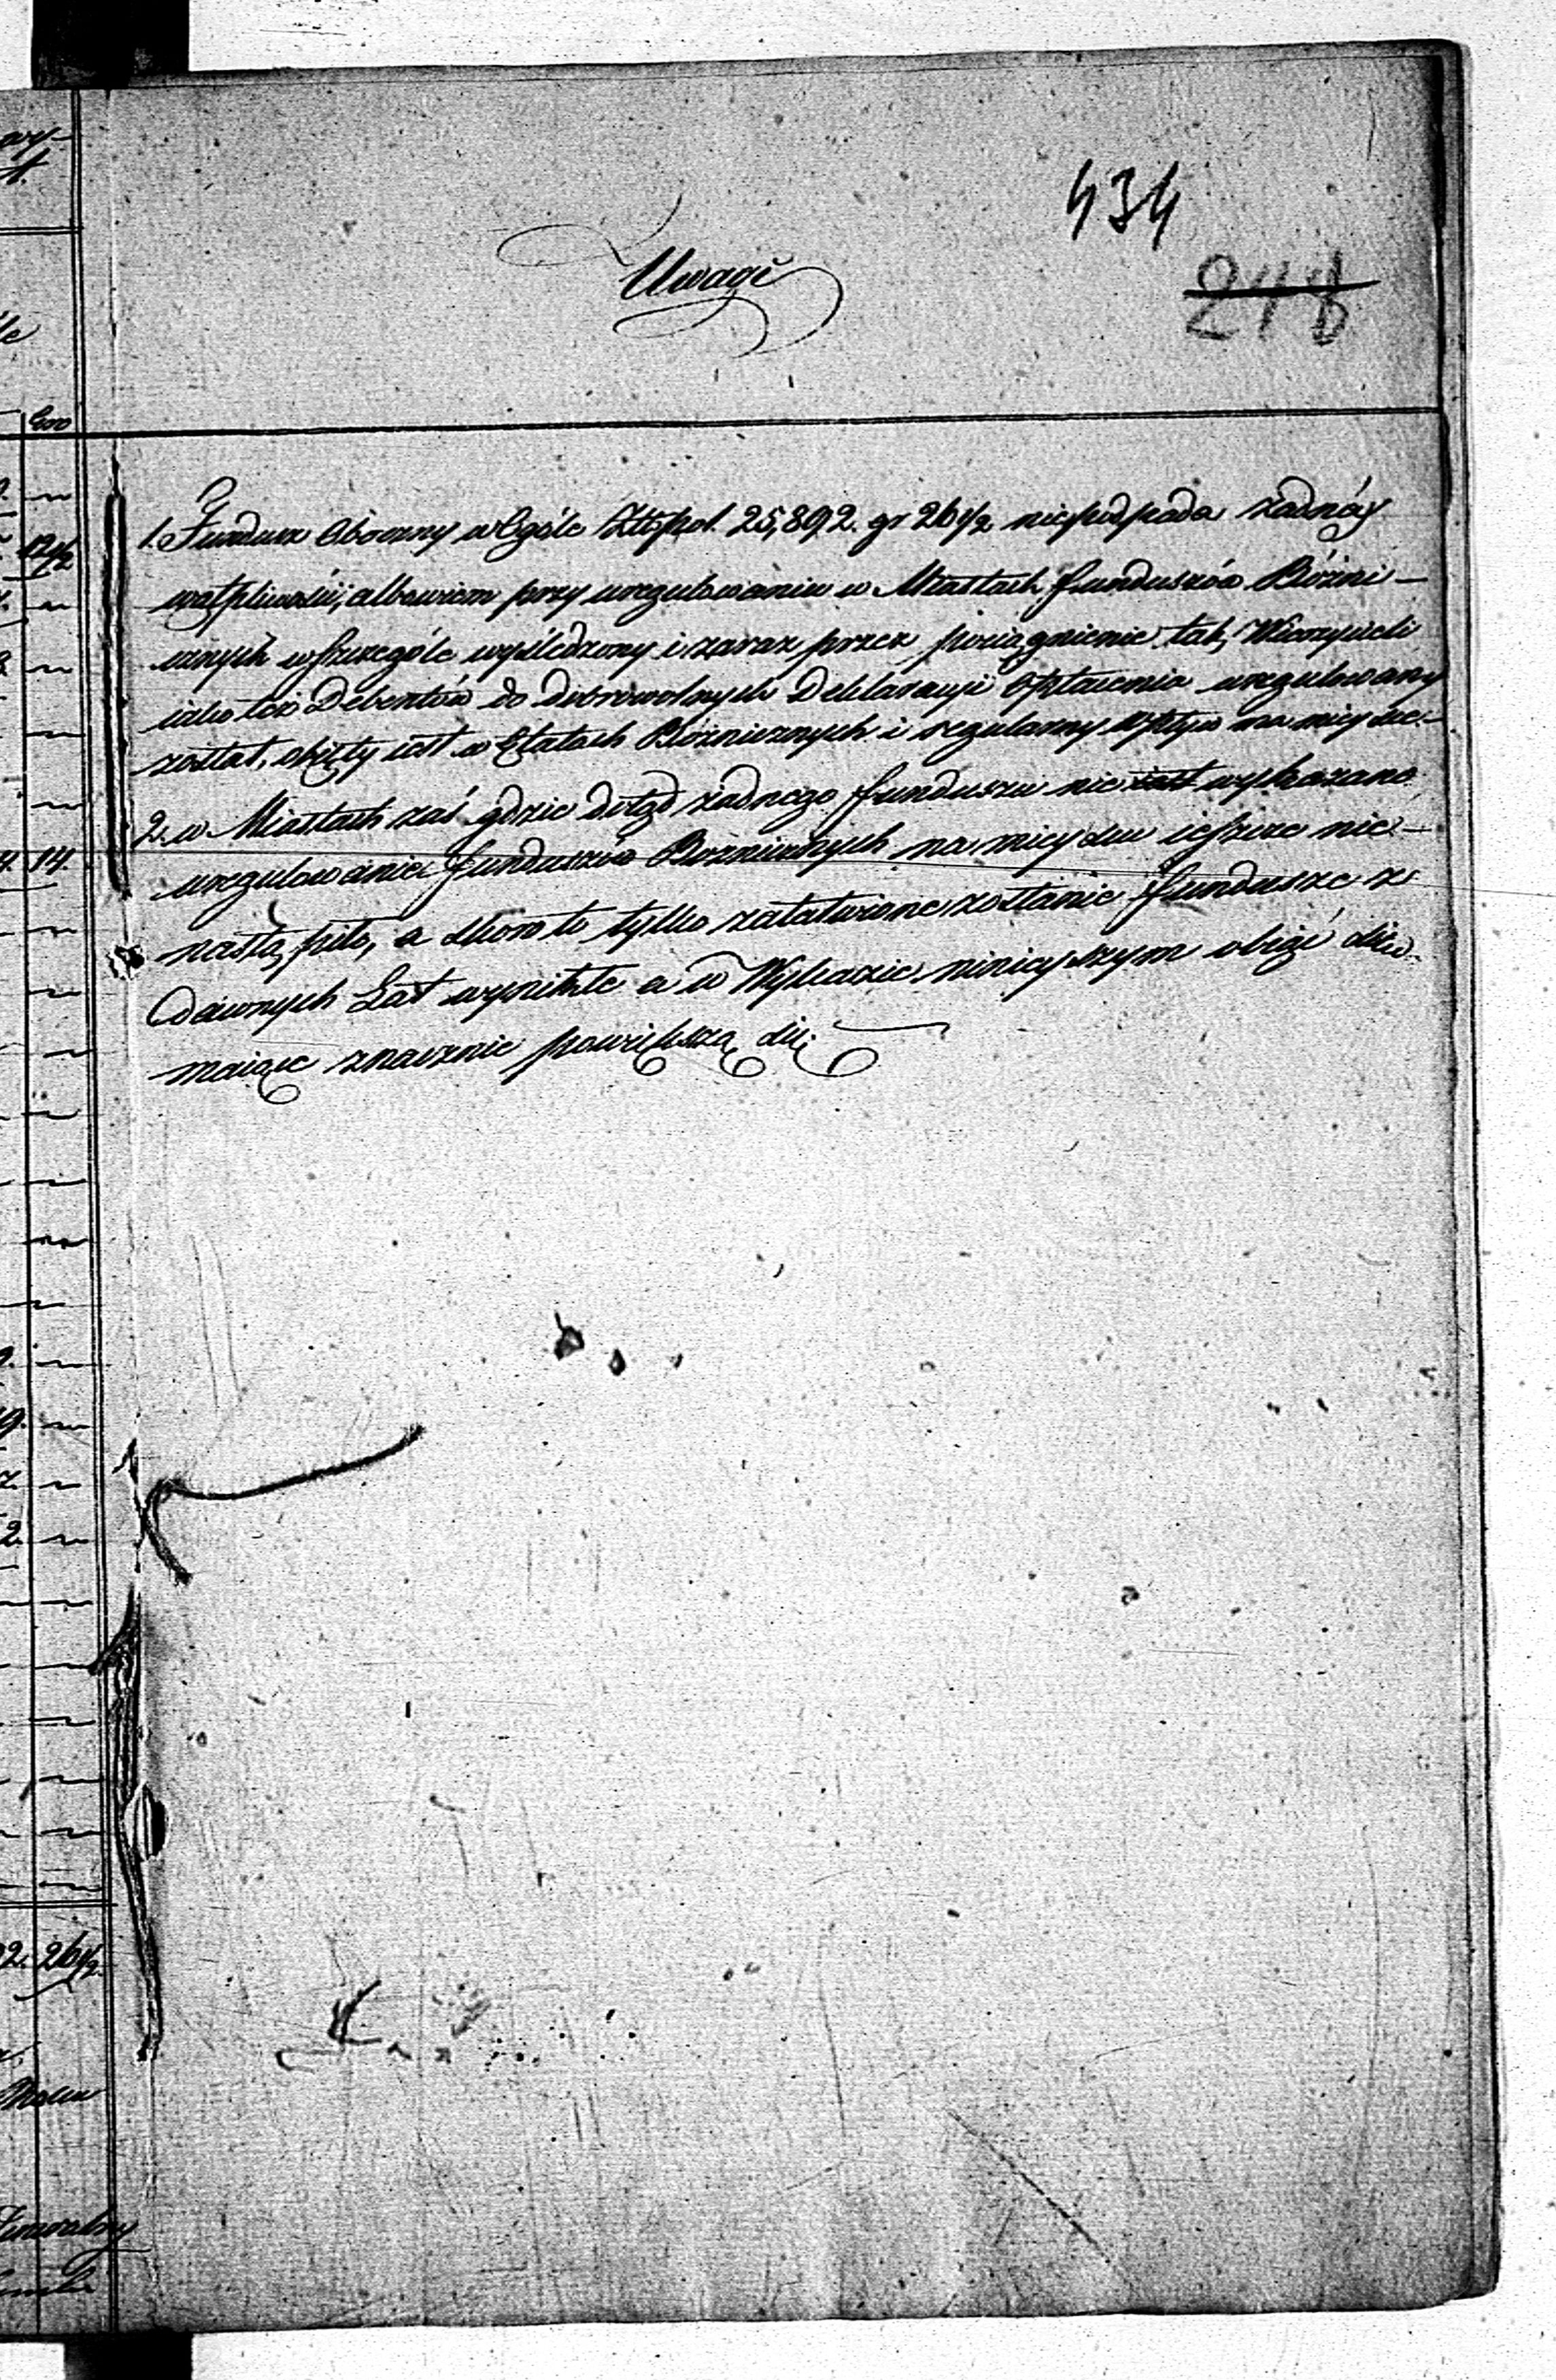 434
248
Uwagi
1. Fundusz Oboczny w Ogóle Złtpol. 25,892. gr 26 1/2 niepodpada żadnéy
wątpliwości, albowiem przy uregulowaniu w Miastach funduszów Bóżni-
cznych wszczególe wyśledzony i zaraz przez pociągnienie tak Wierzycieli
iako też Debentów do dobrowolnych Deklaracyi Opłacenia uregulowany
został, obięty iest w Etatach Bóżnicznych i regularny wpływ ma mieysce.
2. w Miastach zaś gdzie dotąd żadnego funduszu nie iest wykazane
uregulowanie funduszów Bóżnicznych na mieyscu ieszcze nie-
nastąpiło, a skoro to tylko załatwione zostanie fundusze z
dawnych Lat wynikłe a w Wykazie ninieyszym obiąć się
maiące znacznie powiększą się.
Gro
12 1/2
14.
2. 26 1/2.